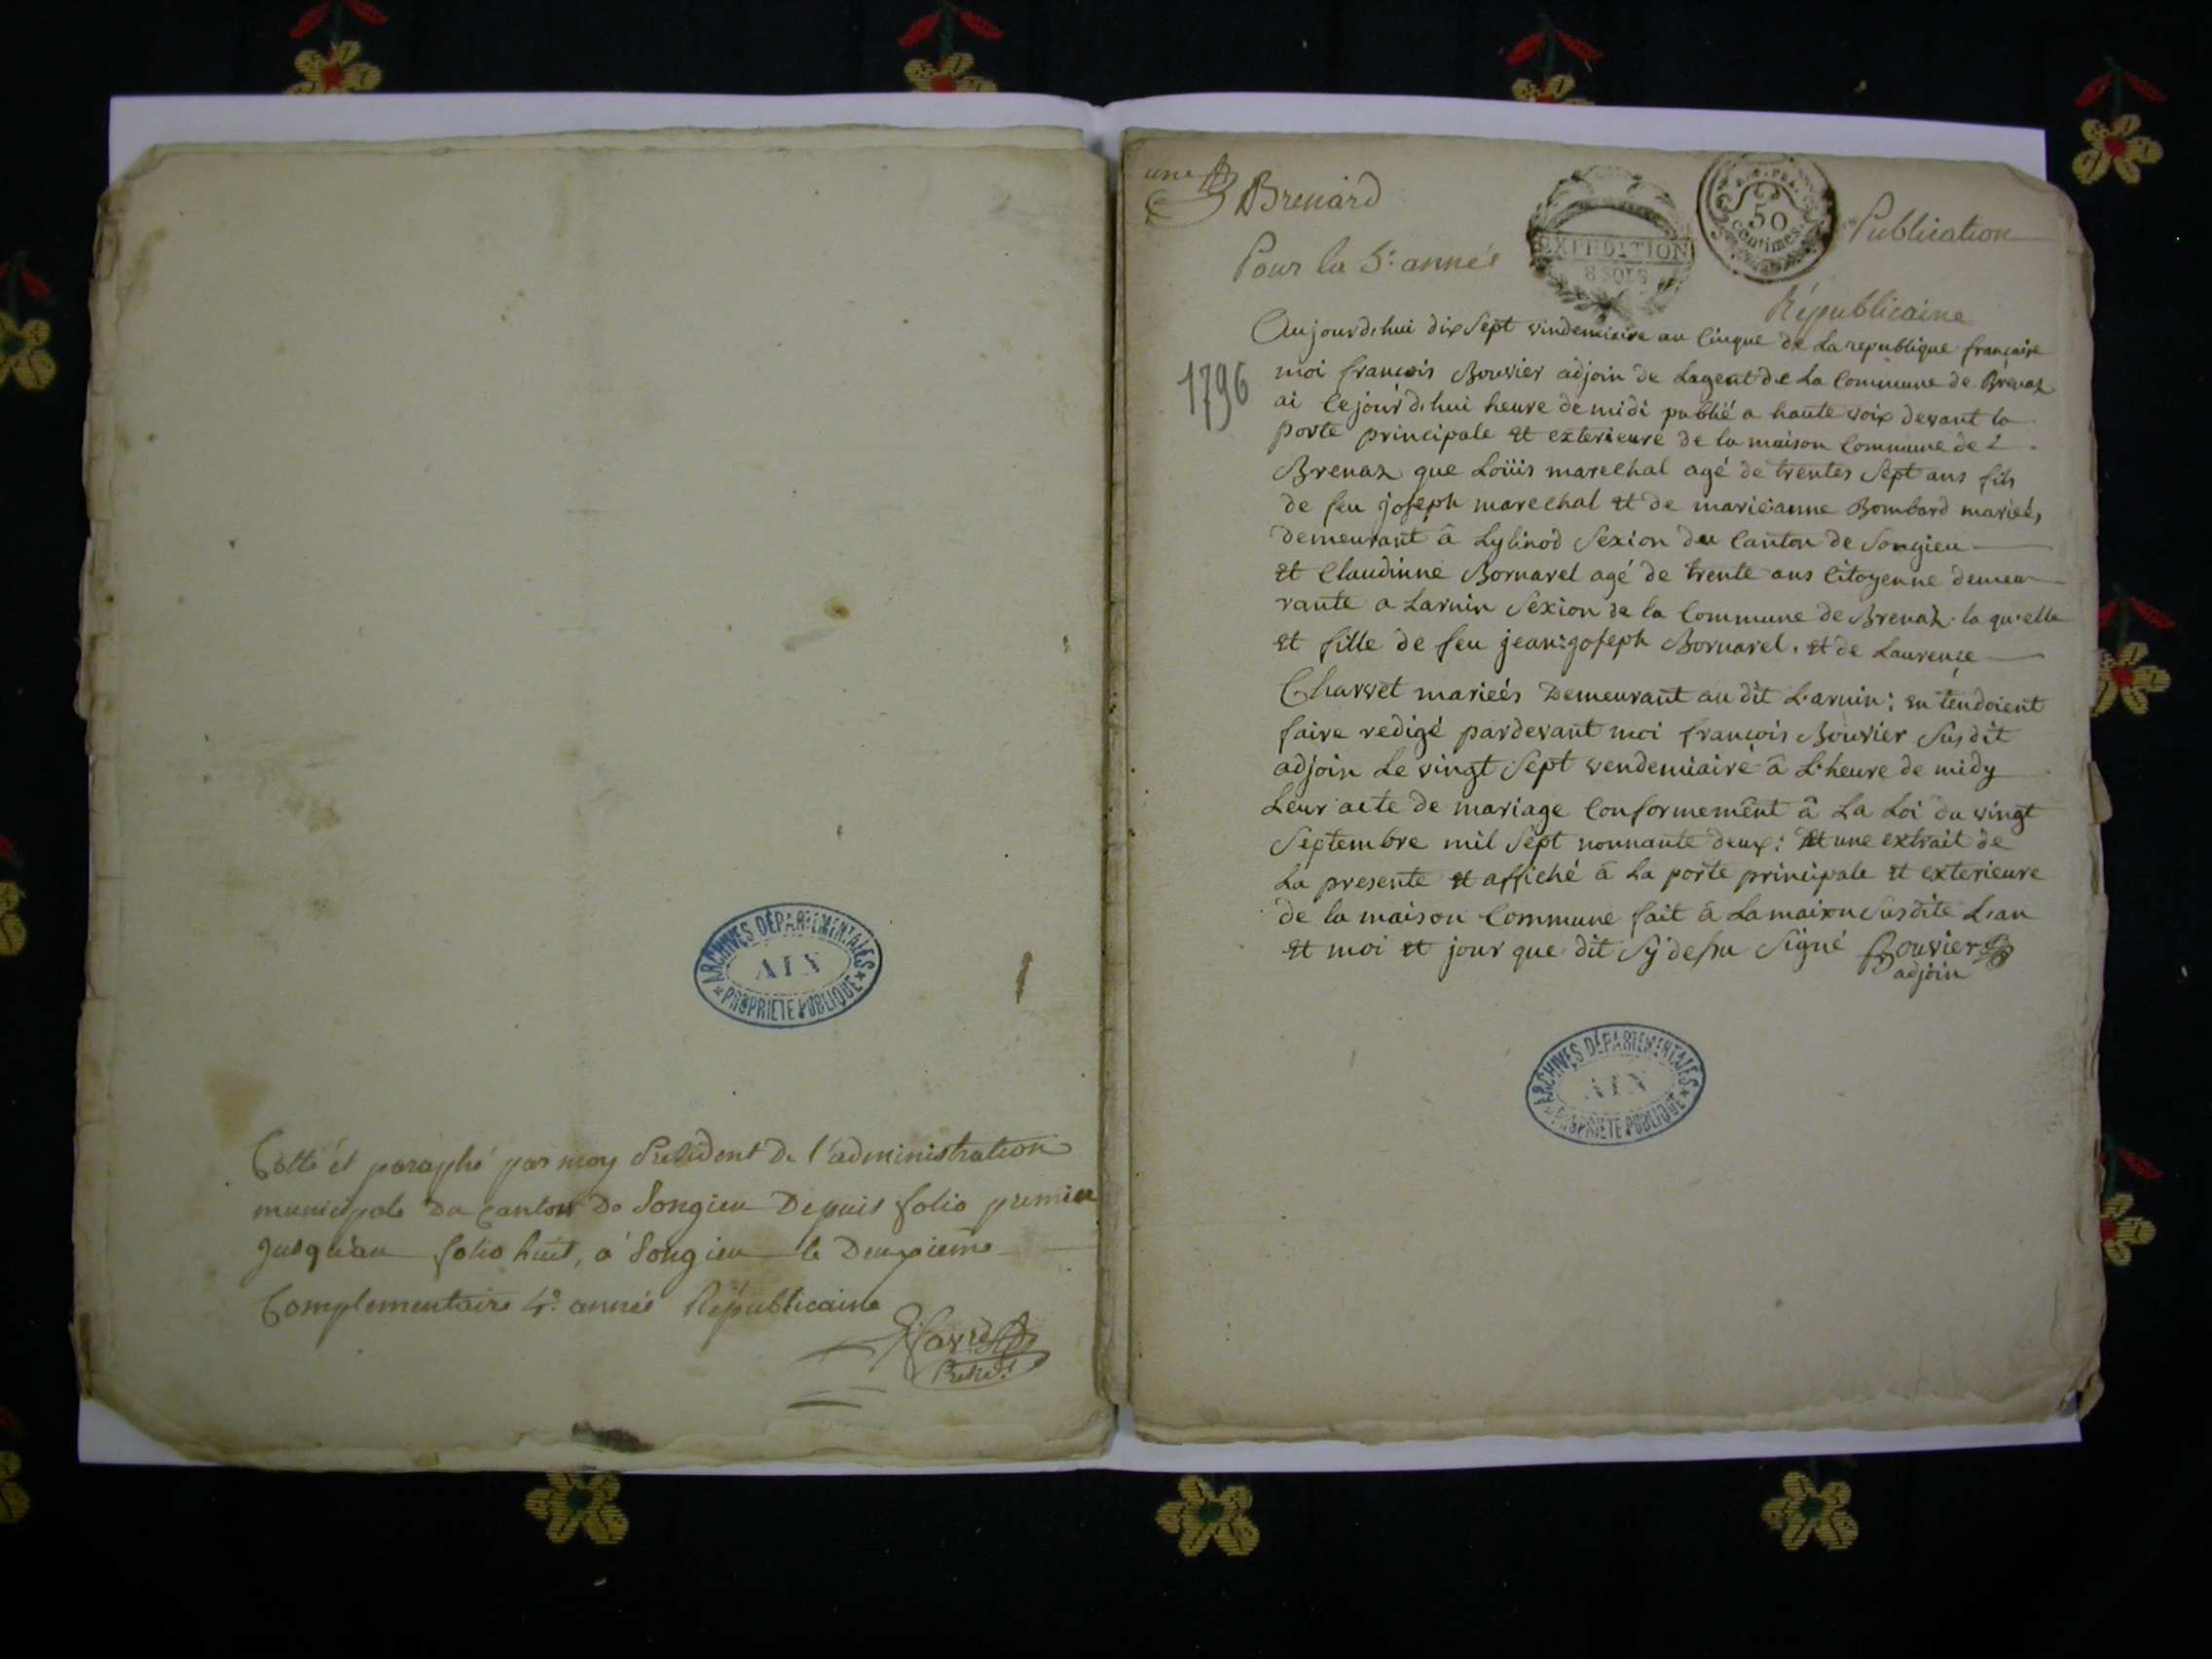 Cotté et paraphé par moy Président De l'administration
municipale Du Canton De Songieu Depuis folio premier
Jusqu'au folio huit, a Songieu le Deuxieme
Complementaire 4e. année Républicaine
Presidt.
ARCHIVES DÉPARTEMENTALES
AIN
PROPRIETE PUBLIQUE
une
Brenard
EXPEDITION
8 SOLS
50
centimes
Publication
Pour la 5e. année
Républicaine
1796
Aujourd'hui dix Sept vindemiaire an Cinque de La republique française
moi françois Bouvier adjoin de Lagent de La Commune de Brénaz
ai Cejourd'hui heure de midi publié a haute voix devant la
porte principale et exterieure de la maison Commune de
Brenaz que Loüis marechal agé de trentes Sept ans fils
de feu joseph marechal et de marie:anne Bombard mariés,
demeurant â Lylinod Sexion du Canton de Songieu
et Claudinne Bornarel agé de trente ans Citoyenne demeu
rante a Larnin Sexion de la Commune de Brenaz. la qu'elle
et fille de feu jean:joseph Bornarel. et de Laurence
Charvet marieés Demeurant au dit L'arnin: en tendoient
faire redigé pardevant moi françois Bouvier Susdit
adjoin Le vingt Sept vendemiaire â L'heure de midy
Leur acte de mariage Conformemênt â La Loi du vingt
Septembre mil Sept nonnante deux: Et une extrait de
La presente et affiché â La porte principale et exterieure
de la maison Commune fait â La maison Susdite L'an
et moi et jour que dit Sy dessu Signé Bouvier
adjoin
ARCHIVES DÉPARTEMENTALES
AIN
PROPRIETE PUBLIQUE